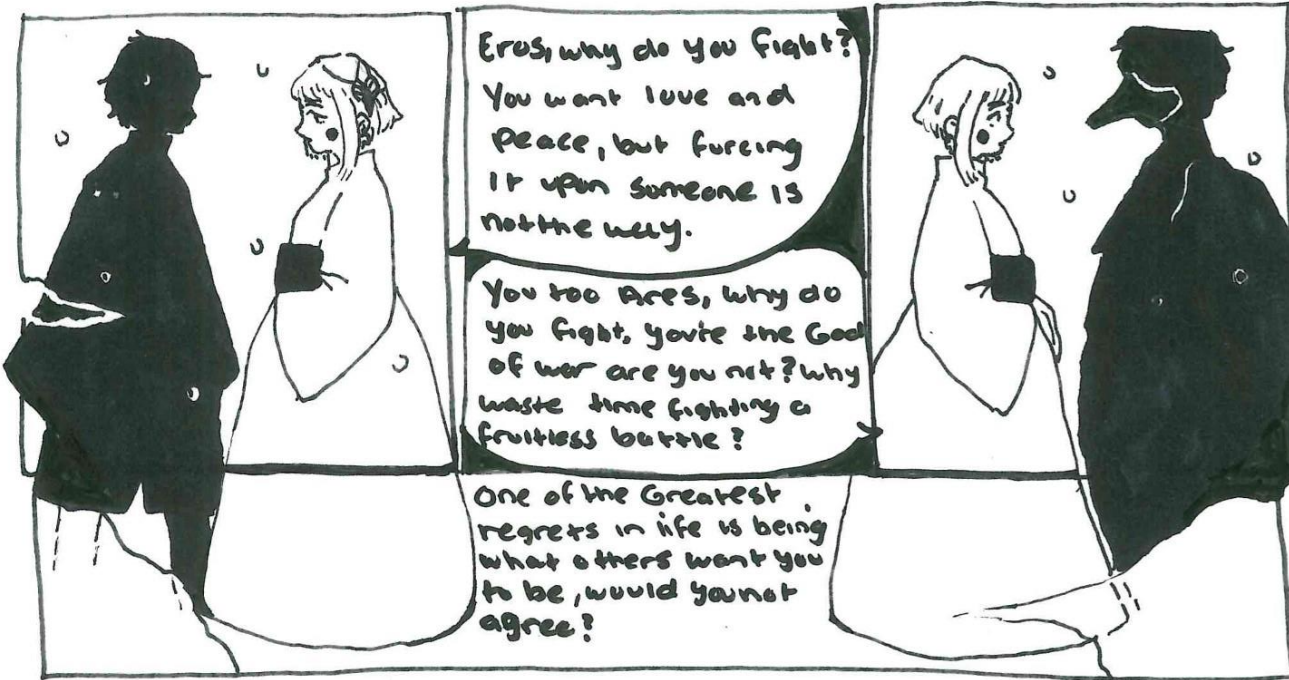 Eros, why do you fight?
You want love and
peace, but forcing
it upon someone is
not the way.
You too Ares, why do
you fight, you're the God
of war are you not? why
waste time fighting a
fruitless battle?
One of the Greatest
regrets in life is being
what others want you
to be, would you not
agree?